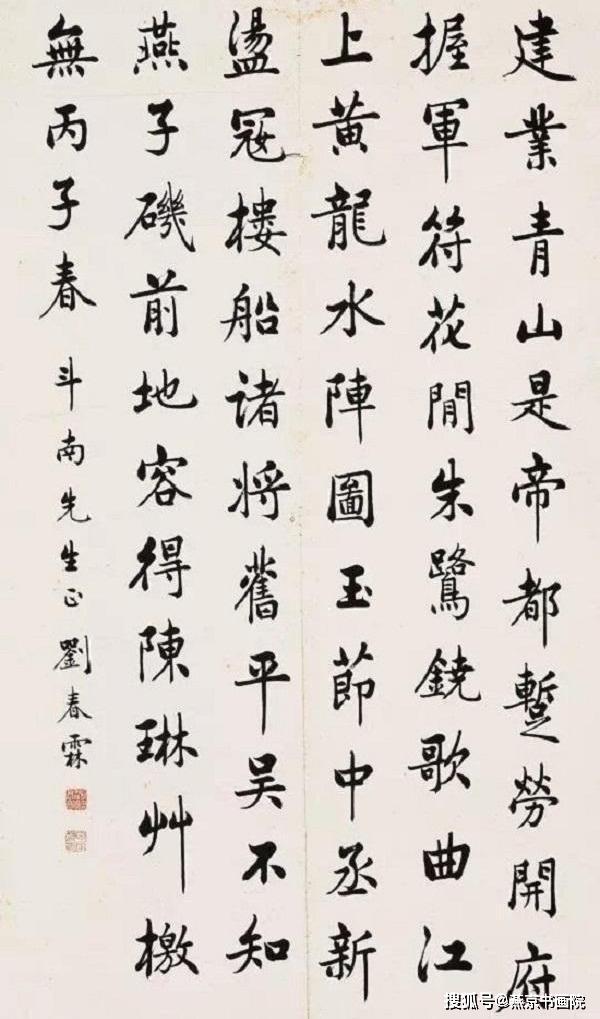 建業青山是帝都蹔勞開府
握軍符花閒朱鷺鐃歌曲江
上黃龍水陣圖玉莭中丞新
盪冦樓船諸將舊平吴不知
燕子磯前地容得陳琳艸檄
無丙子春
斗南先生正 劉春霖
搜狐号@燕京书画院